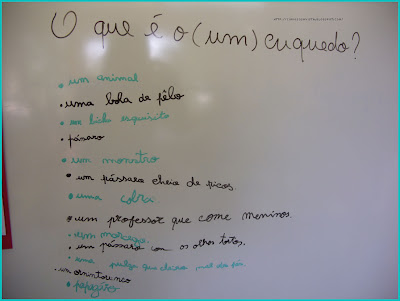 O que é o (um) cuquedo?
• um animal
• uma bola de pêlo
• um bicho esquisito
• pássaro
• um monstro
• um pássaro cheio de picos.
• uma cobra
• um professor que come meninos.
• um morcego.
• um pássaro com os olhos tortos.
• uma pulga que cheira mal dos pés.
• um ornitorrinco
• papagaio